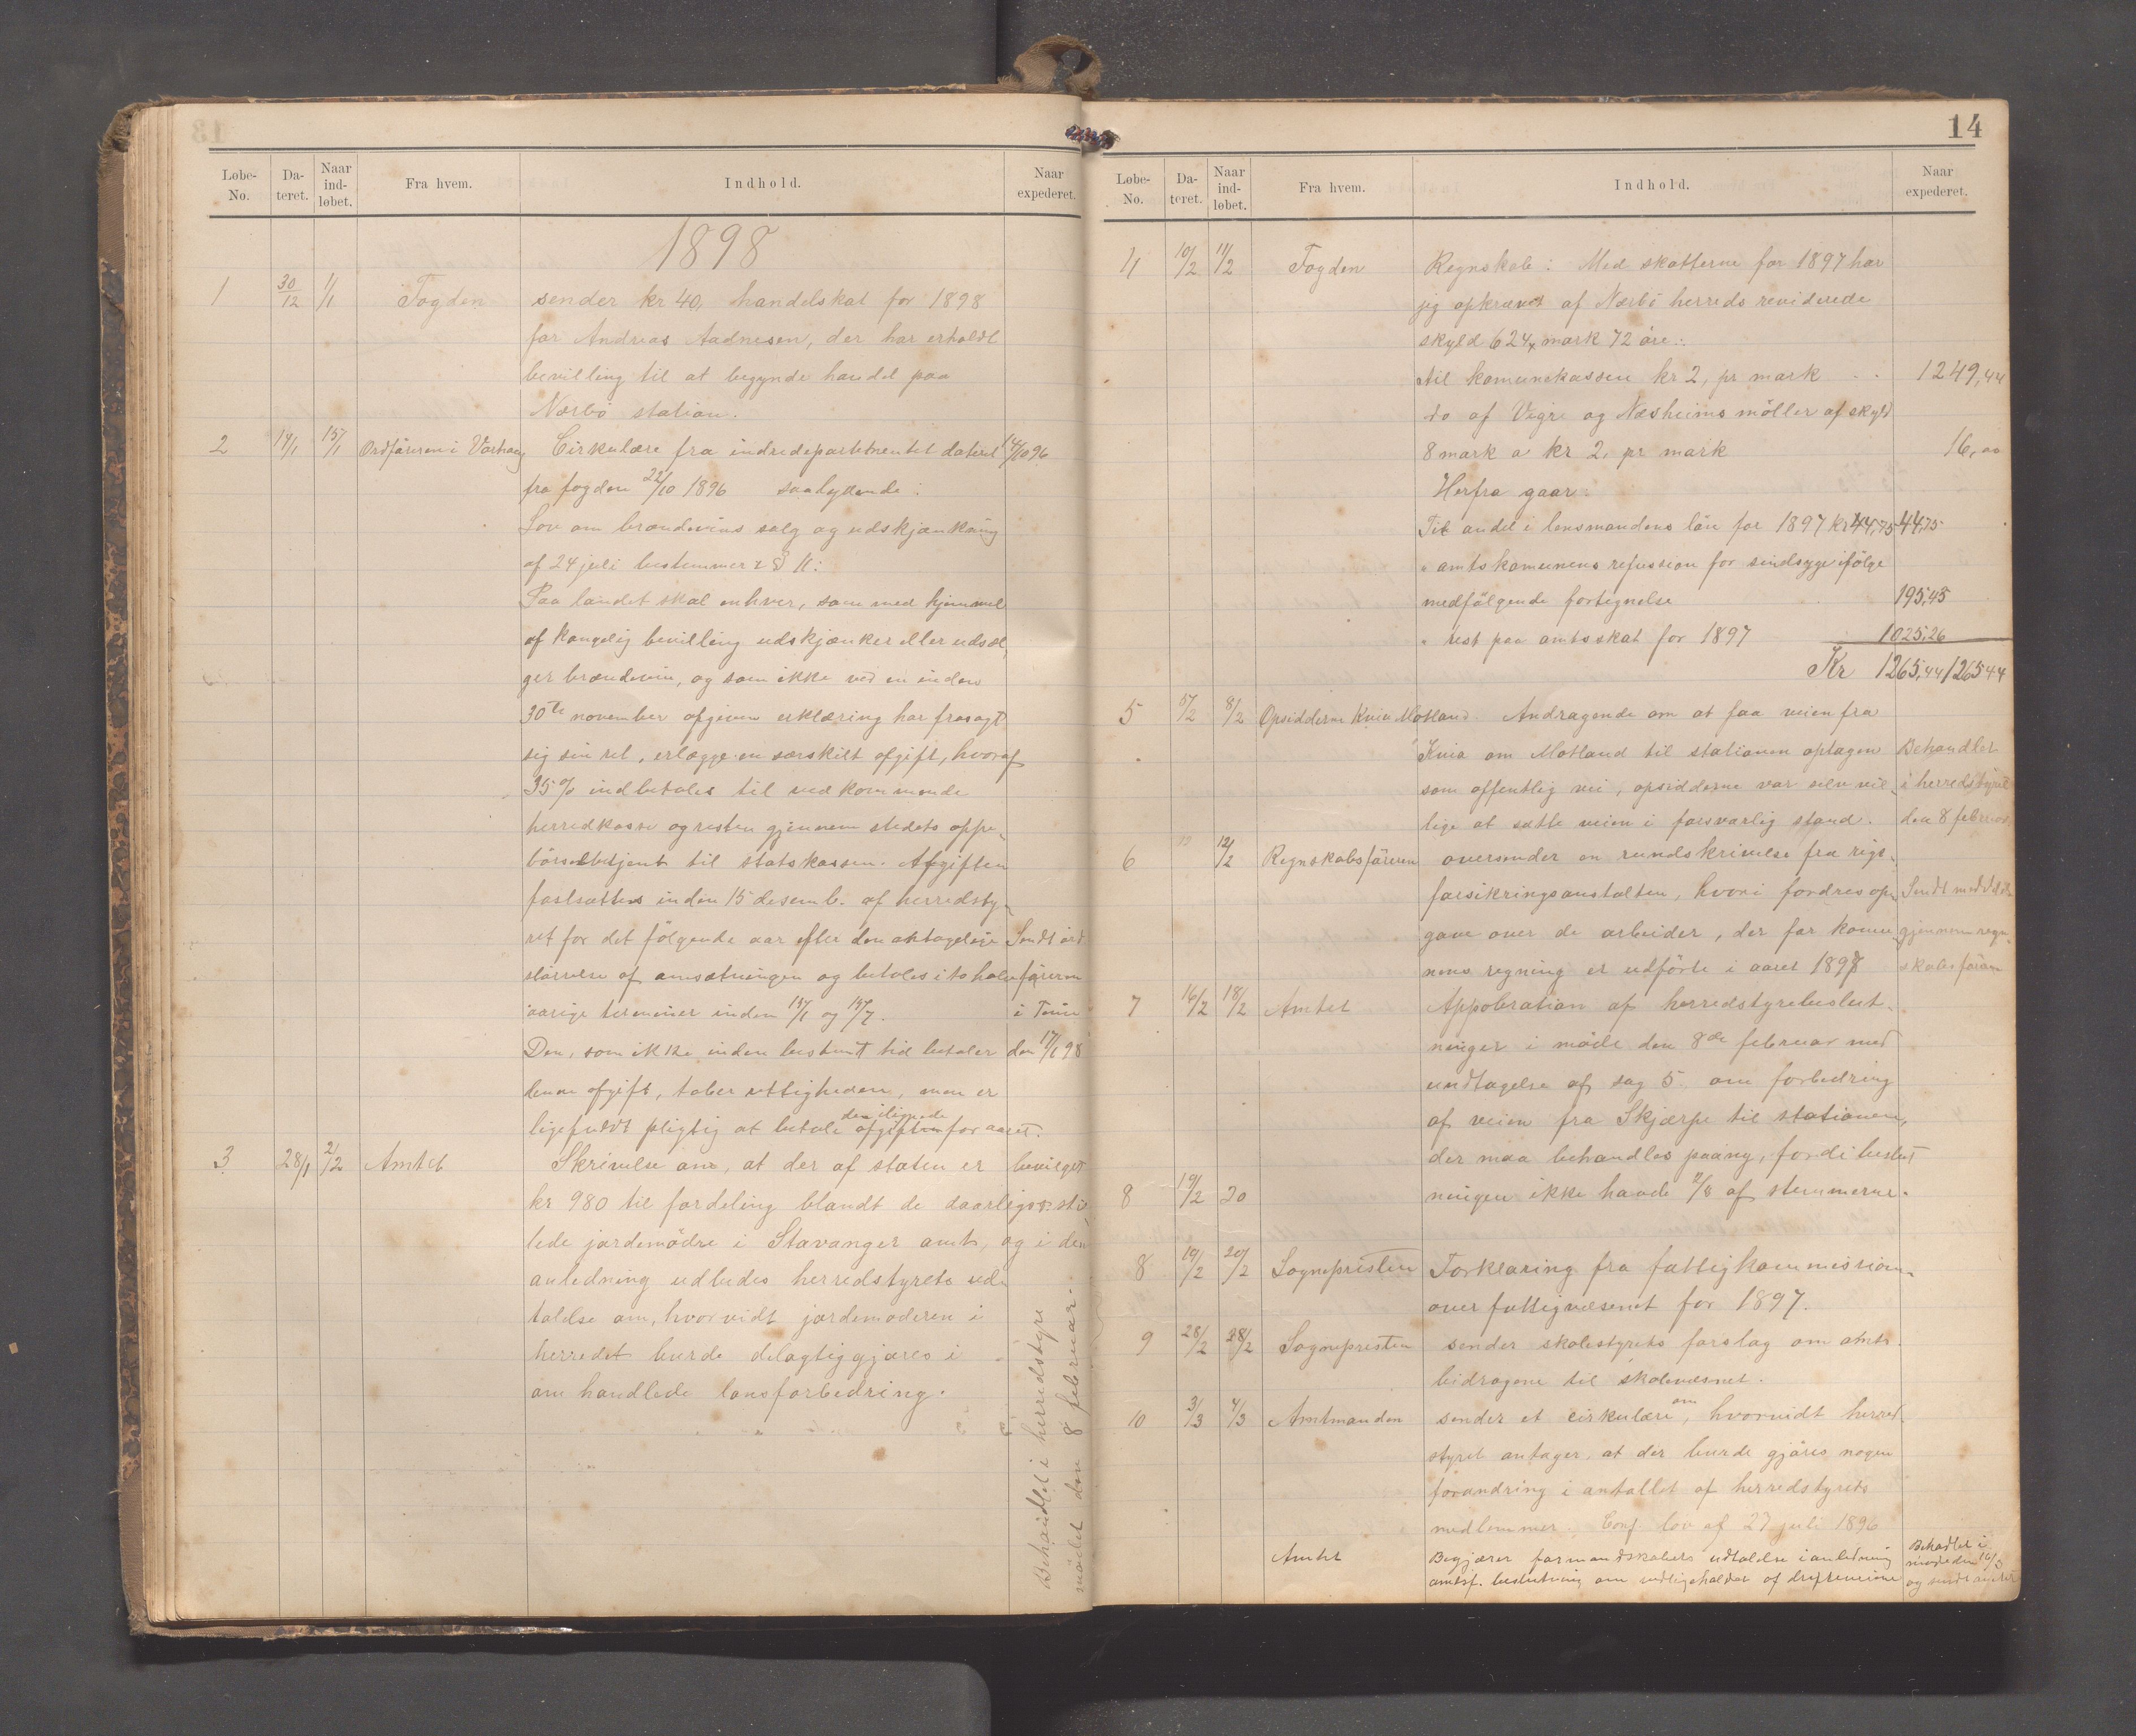 Løbe-No. Da-teret. Naar ind-løbet. Fra hvem. Indhold. Naar expederet.
1898
1 30/12 1/1 Fogden sender kr 40, handelskat for 1898
for Andreas Aadnesen, der har erholdt
bevilling til at begynde handel paa
Nærbö station.
2 14/1 15/1 Ordföreren i Varhaug Cirkulære fra indredepartementet dateret 14/10 96
fra fogden 22/10 1896 saalydende:
Lov om brændevins salg og udskjænkning
af 24 juli bestemmer § 11:
Paa landet skal enhver, som med hjemmel
af kongelig bevilling udskjænker eller udsæl-
ger brændevin, og som ikke ved en inden
30te november afgiven erklæring har frasagt
sig sin ret, erlægge en særskilt afgift, hvoraf
35 % indbetales til vedkommende
herredkasse og resten gjennem stedets oppe-
börselsbetjent til statskassen. Afgiften
fastsættes inden 15 desemb. af herredsty-
ret for det fölgende aar efter den antagelige Sendt ord-
störrelse af omsætningen og betales i to halv- föreren
aarige terminer inden 15/1 og 15/7. i Time
Den, som ikke inden bestemt tid betaler den 17/1 98
denne afgift, taber rettigheden, men er
ligefuldt pligtig at betale afgiften for aaret.
3 28/1 2/2 Amtet Skrivelse om, at der af staten er bevilget
kr 980 til fordeling blandt de daarligst stil-
lede jordemödre i Stavanger amt, og i den
anledning udbedes herredstyrets ud-
talelse om, hvorvidt jordemoderen i
herredet burde delagtiggjøres i
omhandlede lønsforbedring.
Behandlet i herredstyre
mödet den 8 februar.
14
Løbe-No. Da-teret. Naar ind-løbet. Fra hvem. Indhold. Naar expederet.
4 10/2 11/2 Fogden Regnskab: Med skatterne for 1897 har
jeg opkrævet af Nærbö herreds reviderede
skyld 624 mark 72 öre:
til komunekassen kr 2, pr mark 1249,44
do af Vigre og Næsheims möller af skyld
8 mark a kr 2, pr mark 16,00
Herfra gaar:
Til andel i lensmandens lön for 1897 kr 44,75 44,75
" amtskomunens refusion for sindsyge ifölge
medfölgende fortegnelse 195,43
" rest paa amtsskat for 1897 1025,26
Kr 1265,44 1265 44
5 5/2 8/2 Opsidderne Kvia Motland. Andragende om at faa veien fra
Kvia om Motland til stationen optagen Behandlet
som offentlig vei, opsidderne var selv vil- i herredstyret
lige at sætte veien i forsvarlig stand. den 8 februar.
6 12/2 Regnskabsföreren oversender en rundskrivelse fra rigs-
forsikringsanstalten, hvori fordres op-
gave over de arbeider, der for komu- gjennem regn-
nens regning er udförte i aaret 1897 skabsföreren
7 16/2 18/2 Amtet Appobration af herredstyrebeslut-
ninger i möde den 8de februar med
undtagelse af sag 5 om forbedring
af veien fra Skjærpe til stationen,
der maa behandles paany, fordi beslut
8 19/2 20 ningen ikke havde 2/3 af stemmerne.
8 19/2 20/2 Sognepresten Forklaring fra fattigkommission
over fattigvæsenet for 1897.
9 28/2 28/2 Sognepresten sender skolestyrets forslag om amts
bidragene til skolevæsnet.
10 3/3 4/3 Amtmanden sender et cirkulære om, hvorvidt herred-
styret antager, at der burde gjöres nogen
forandring i antallet af herredstyrets
medlemmer. Conf. lov af 27 juli 1896
Amtet Begjærer formandskabets udtalelse i anledning Behadlet i
amtsf. beslutning om vedligeholdet af